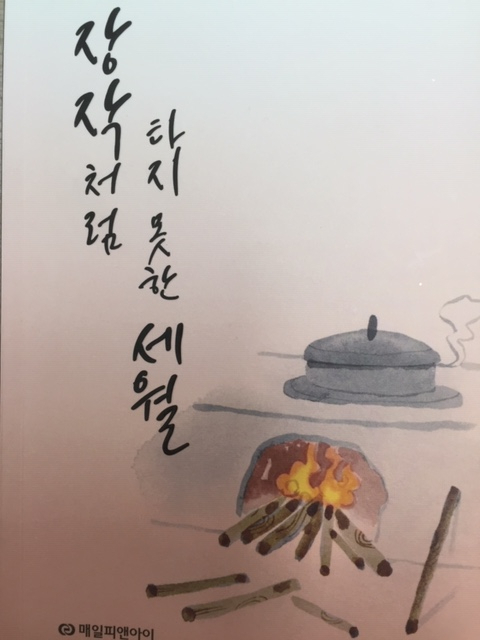 장작처럼
타지 못한 세월
매일피앤아이